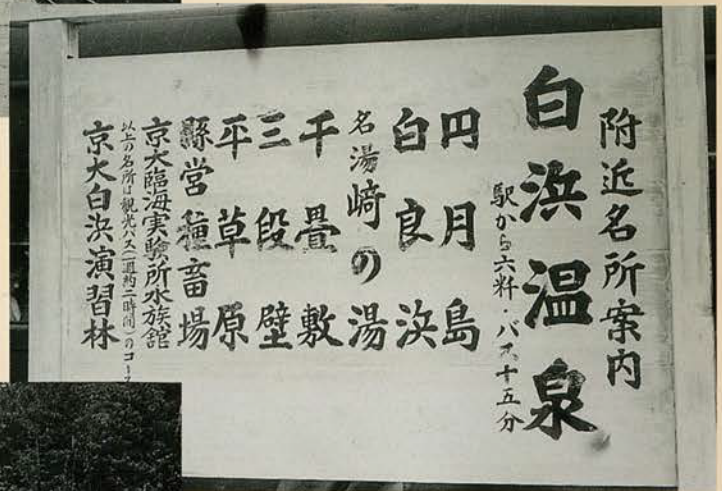 附近名所案内
白浜温泉
駅から六粁・バス十五分
円月島
白良浜
名湯崎の湯
千畳敷
三段壁
平草原
縣営種畜場
京大臨海実験所水族舘
以上の名所は観光バス(一週約二時間)のコース
京大白浜演習林